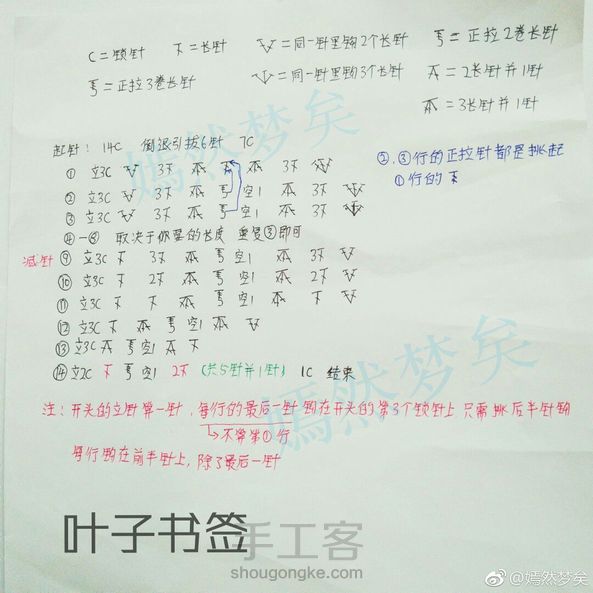 C=锁针 下=长针 V=同一针里钩2个长针 =正拉2卷长针
=正拉3卷长针 =同一针里钩3个长针 A=2长针并1针
=3长针并1针
起针: 14C 倒退引拔6针 7C
① 立3C 3下 3下
② 立3C 3下 空1 3下
③ 立3C 3下 空1 3下
②,③行的正拉针都是挑起
①行的下
④—⑧ 取决于你要的长度 重复③即可
减针 ⑨ 立3C 下 3下 空1 3下
⑩ 立3C 下 2下 空1 2下
⑪ 立3C 下 下 空1 下
⑫ 立3C 下 空1
⑬ 立3C A 空1 A 下
⑭ 立2C 下 空1 2下 (共5针并1针) 1C 结束
注: 开头的立针算一针, 每行的最后一针钩在开头的第3个锁针上 只需挑后半针钩
→不常第①行
每行钩在前半针上, 除了最后一针
嫣然梦矣
嫣然梦矣
叶子书签
手工客
shougongke.com
@嫣然梦矣